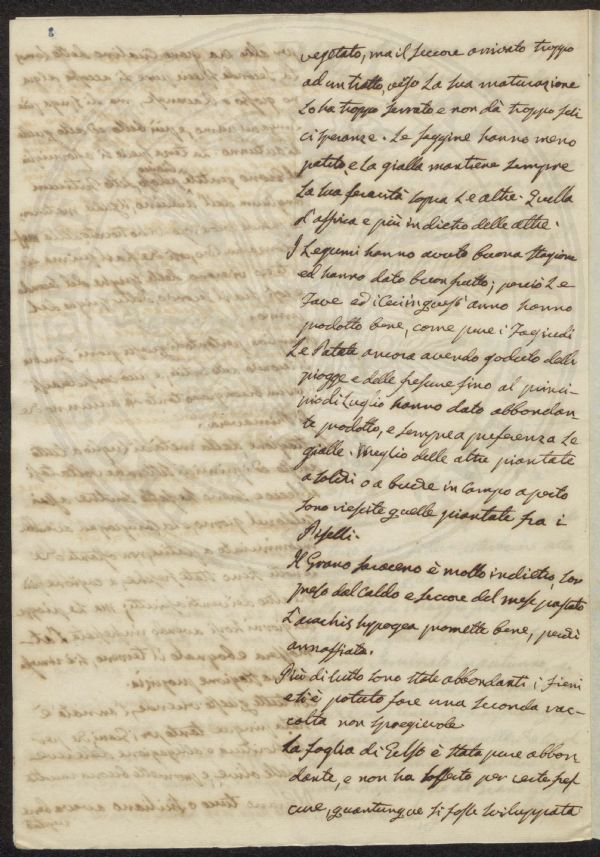 8
vegetato, ma il seccore arrivato troppo
ad un tratto, verso la sua maturazione
lo ha troppo serrato e non dà troppo feli
ci speranze. Le saggine hanno meno
patito, e la gialla mantiene sempre
la sua feracità sopra le altre. Quella
d'affrica e più indietro delle altre.
I Legumi hanno avuto buona stagione
ed hanno dato buon frutto; perciò Le
Fave ed i Ceci in quest'anno hanno
prodotto bene, come pure i Fagiuoli
Le Patate ancora avendo goduto delle
piogge e delle frescure fino al princi-
pio di Luglio hanno dato abbondan
te prodotto, e sempre a preferenza Le
gialle. Meglio delle altre piantate
a solchi o a buche in campo aperto
sono riescite quelle piantate fra i
Piselli.
Il Grano saraceno è molto indietro, sor
preso dal caldo e seccore del mese passato
L'arachis hypogea promette bene, perchè
annaffiata.
Più di tutto sono state abbondanti i fieni
e si è potuto fare una seconda rac-
colta non spregievole
La foglia di Gelso è stata pure abbon
dante, e non ha sofferto per certe fres
cure, quantunque si fosse sviluppata